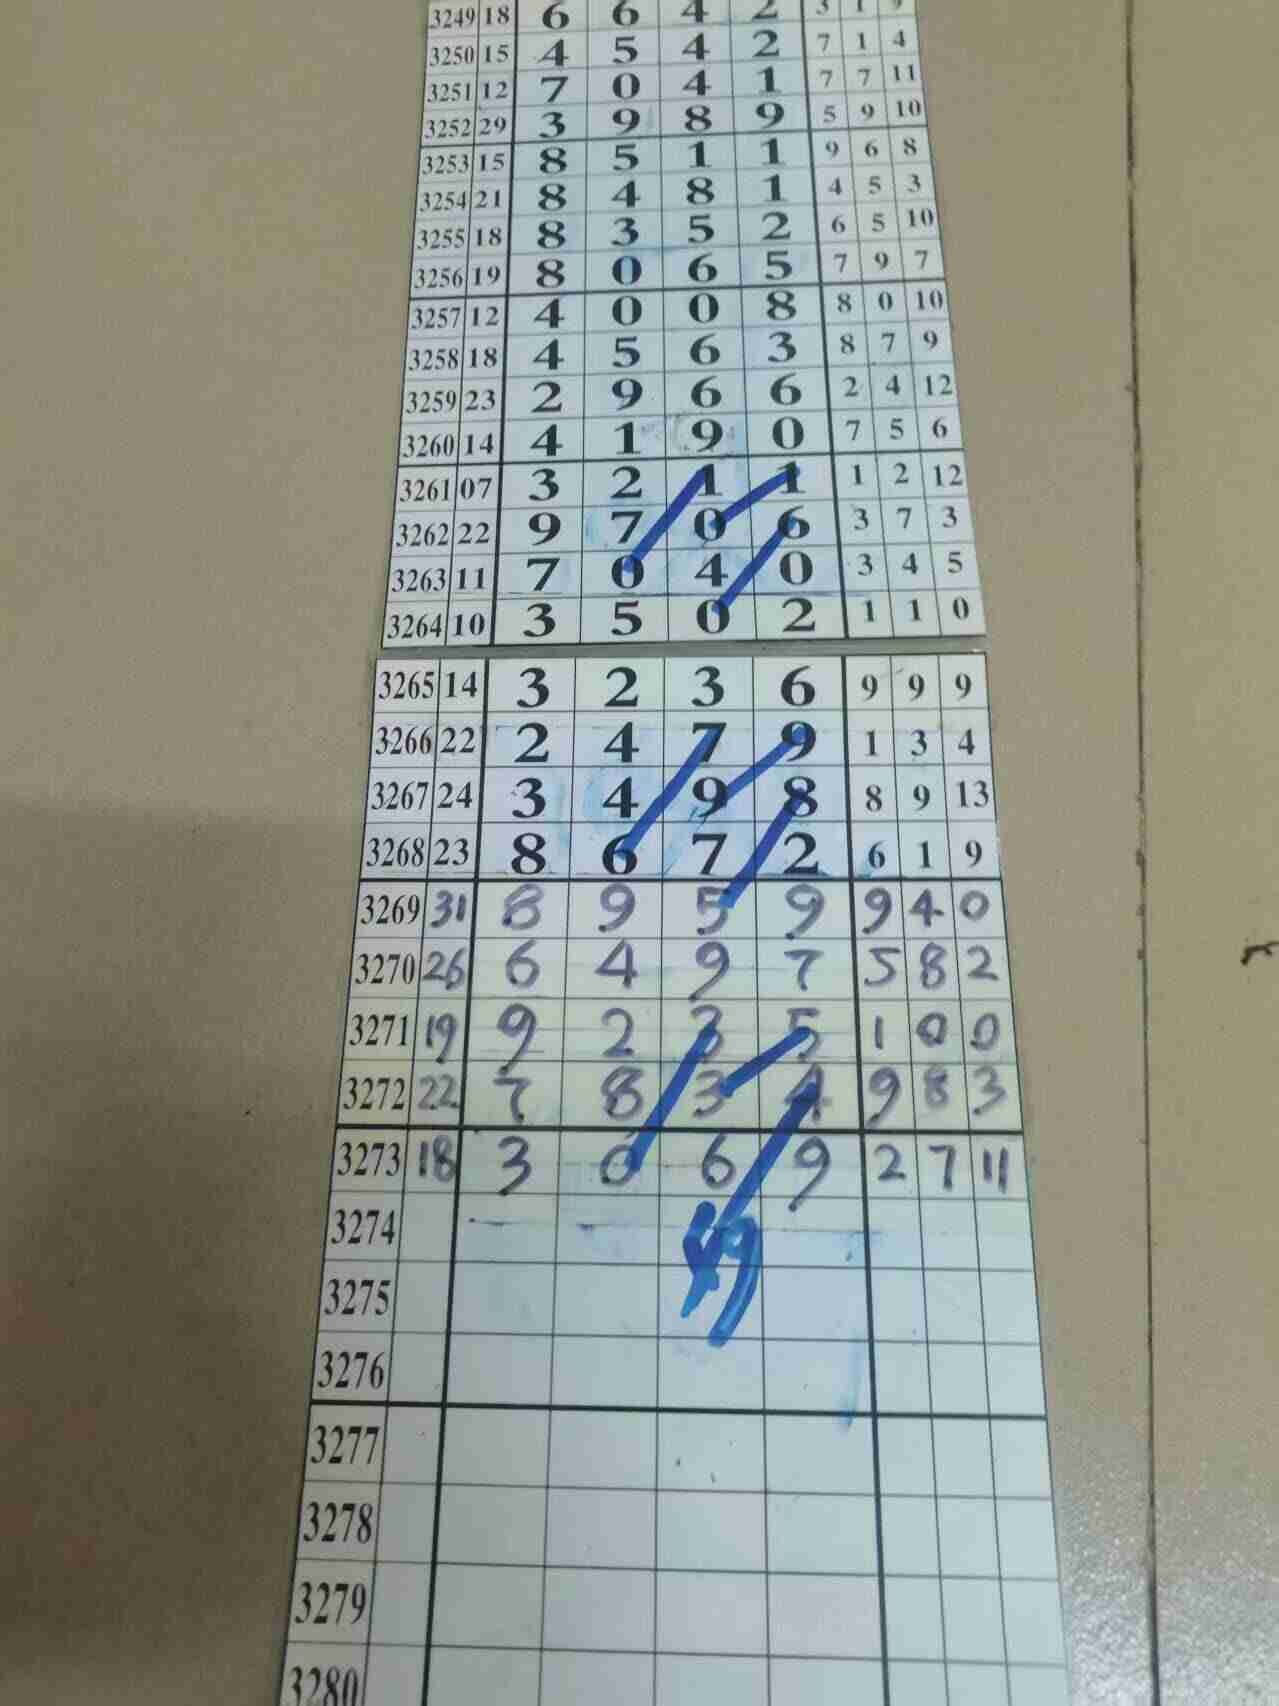 3249 18 6 6 4 2 3 1 9
3250 15 4 5 4 2 7 1 4
3251 12 7 0 4 1 7 7 11
3252 29 3 9 8 9 5 9 10
3253 15 8 5 1 1 9 6 8
3254 21 8 4 8 1 4 5 3
3255 18 8 3 5 2 6 5 10
3256 19 8 0 6 5 7 9 7
3257 12 4 0 0 8 8 0 10
3258 18 4 5 6 3 8 7 9
3259 23 2 9 6 6 2 4 12
3260 14 4 1 9 0 7 5 6
3261 07 3 2 1 1 1 2 12
3262 22 9 7 0 6 3 7 3
3263 11 7 0 4 0 3 4 5
3264 10 3 5 0 2 1 1 0
3265 14 3 2 3 6 9 9 9
3266 22 2 4 7 9 1 3 4
3267 24 3 4 9 8 8 9 13
3268 23 8 6 7 2 6 1 9
3269 31 8 9 5 9 9 4 0
3270 26 6 4 9 7 5 8 2
3271 19 9 2 3 5 1 0 0
3272 22 7 8 3 4 9 8 3
3273 18 3 0 6 9 2 7 11
3274 49
3275
3276
3277
3278
3279
3280